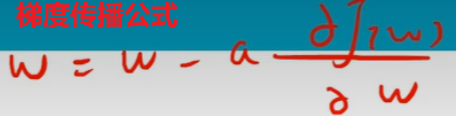 梯度传播公式
w = w - a ∂J(w) / ∂w